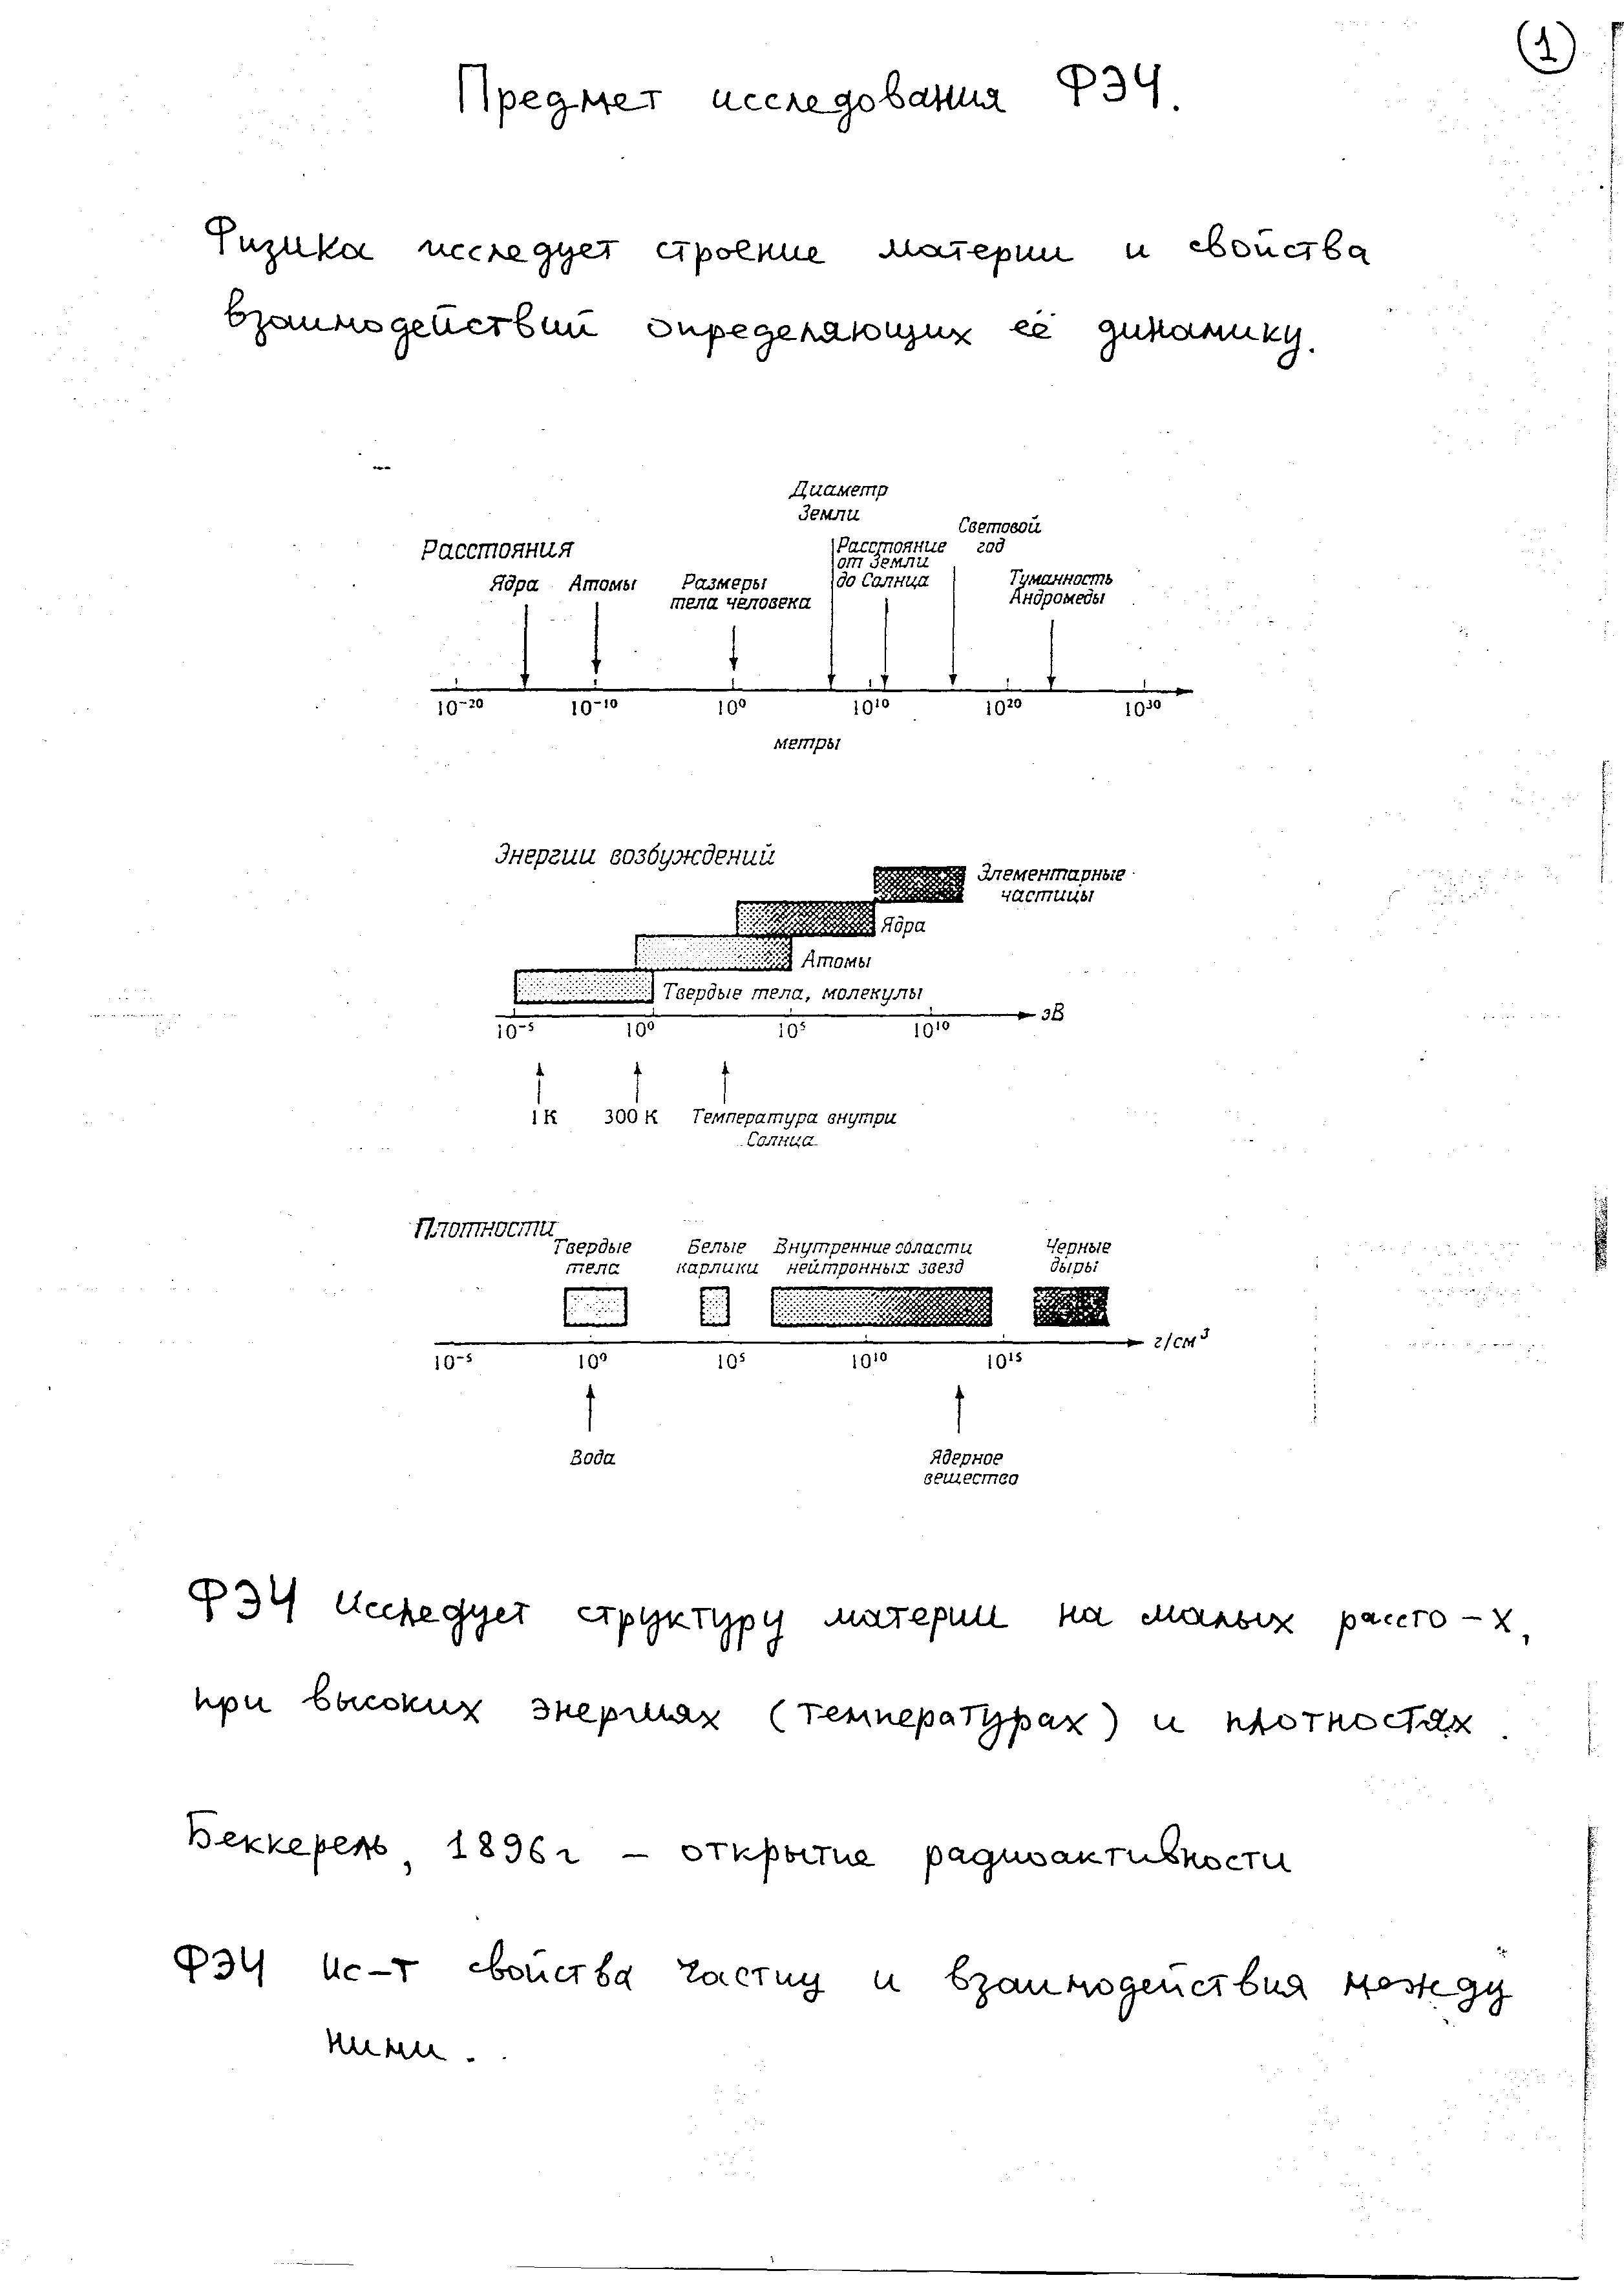 1
Предмет исследования ФЭЧ.
Физика исследует строение материи и свойства
взаимодействий определяющих её динамику.
Диаметр
Земли
Световой
год
Расстояния
Расстояние
от Земли
до Солнца
Ядра Атомы Размеры
тела человека
Туманность
Андромеды
10⁻²⁰ 10⁻¹⁰ 10⁰ 10¹⁰ 10²⁰ 10³⁰
метры
Энергии возбуждений
Элементарные
частицы
Ядра
Атомы
Твердые тела, молекулы
эВ
10⁻⁵ 10⁰ 10⁵ 10¹⁰
1 К 300 К Температура внутри
Солнца
Плотности
Твердые
тела
Белые
карлики
Внутренние области
нейтронных звезд
Черные
дыры
г/см³
10⁻⁵ 10⁰ 10⁵ 10¹⁰ 10¹⁵
Вода
Ядерное
вещество
ФЭЧ исследует структуру материи на малых рассто-х,
при высоких энергиях (температурах) и плотностях.
Беккерель, 1896г – открытие радиоактивности
ФЭЧ ис-т свойства частиц и взаимодействия между
ними.